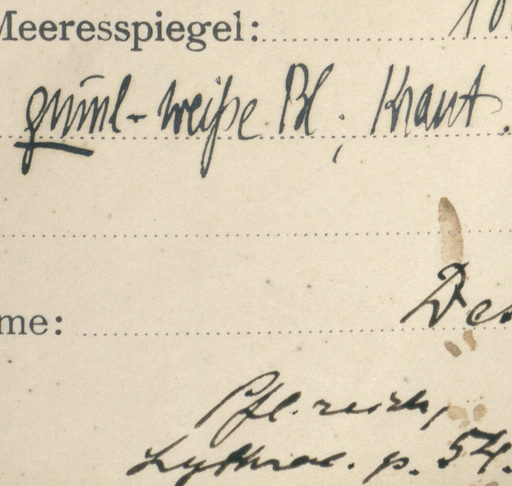 Meeresspiegel: 10
grünl-weiße Bl; Kraut.
me: Des
Pfl. reich,
Lythrac. p. 54.